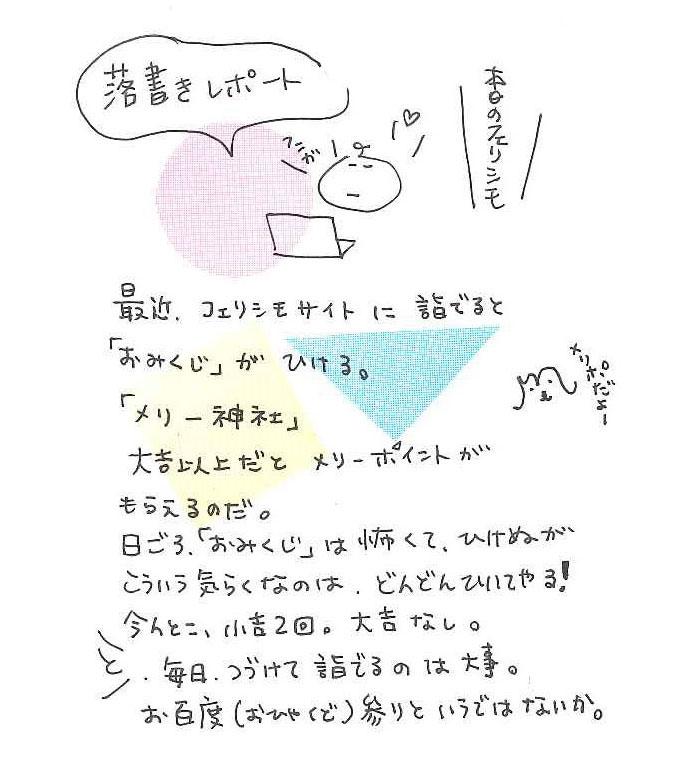 落書きレポート
本日のフェリシモ
最近、フェリシモサイトに詣でると
「おみくじ」がひける。
「メリー神社」
メリポだよー
大吉以上だとメリーポイントが
もらえるのだ。
日ごろ、「おみくじ」は怖くて、ひけぬが
こういう気らくなのは、どんどんひいてやる!
今んとこ、小吉2回。大吉なし。
と、毎日、つづけて詣でるのは大事。
お百度(おひゃくど)参りというではないか。